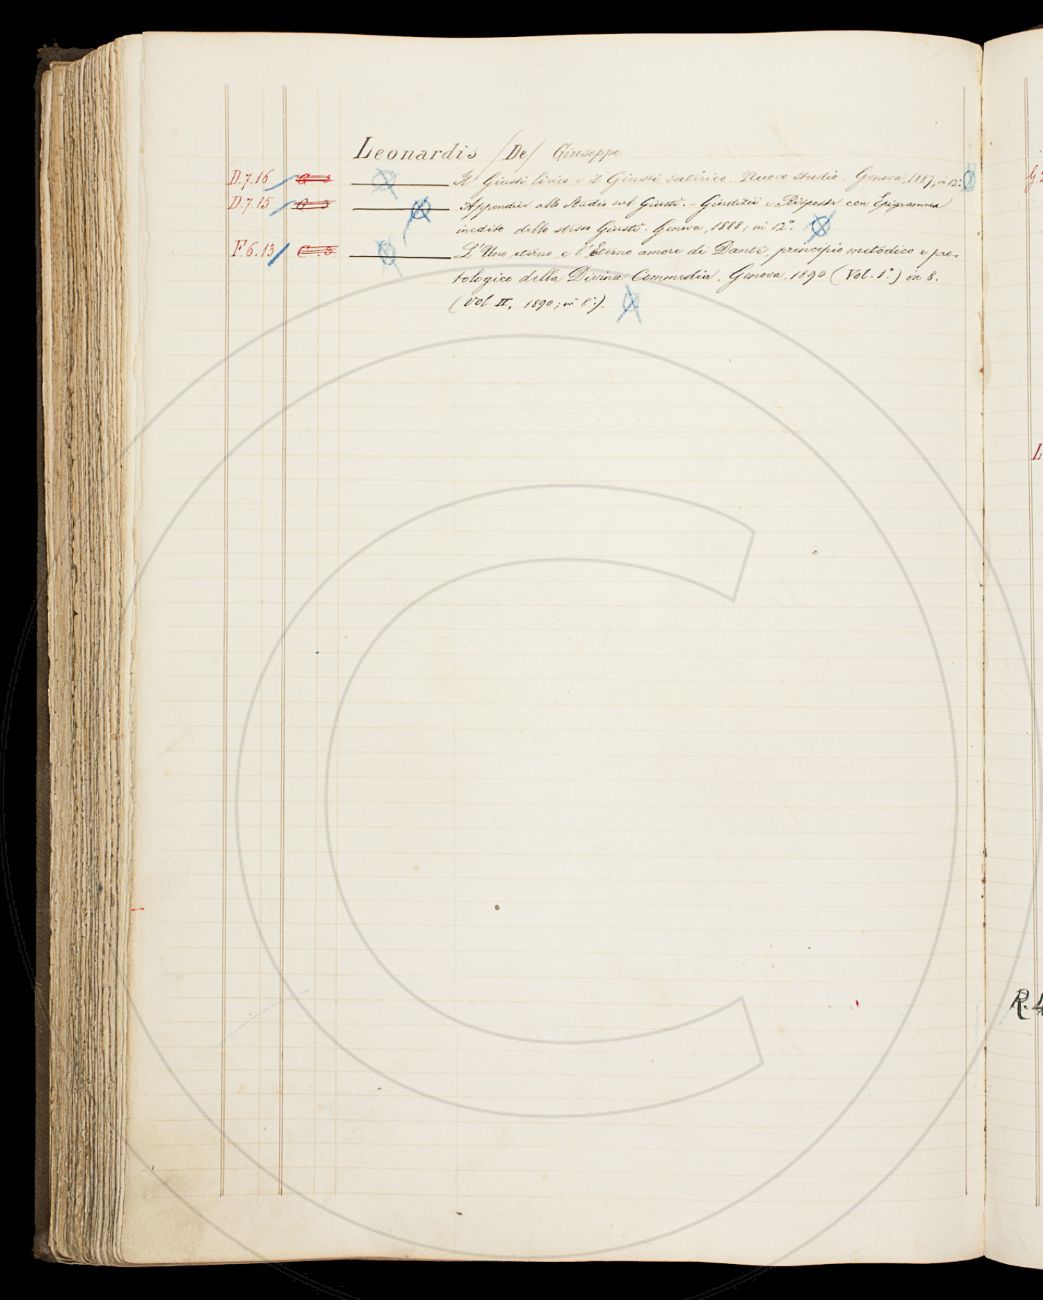 Leonardis /De/ Giuseppe
D.7.16 Il Giusti lirico e il Giusti satirico. Nuovo studio. Genova, 1887; in 12.º
D.7.15 Appendice allo Studio sul Giusti. - Giudizii e Risposte con Epigramma
inedito dello stesso Giusti. Genova, 1888; in 12.º
F.6.13 L'Uno eterno e l'Eterno amore di Dante, principio metodico e pro-
tologico della Divina Commedia. Genova, 1890 (Vol. 1.º) in 8.
(Vol II, 1890; in 8.º).
R.4